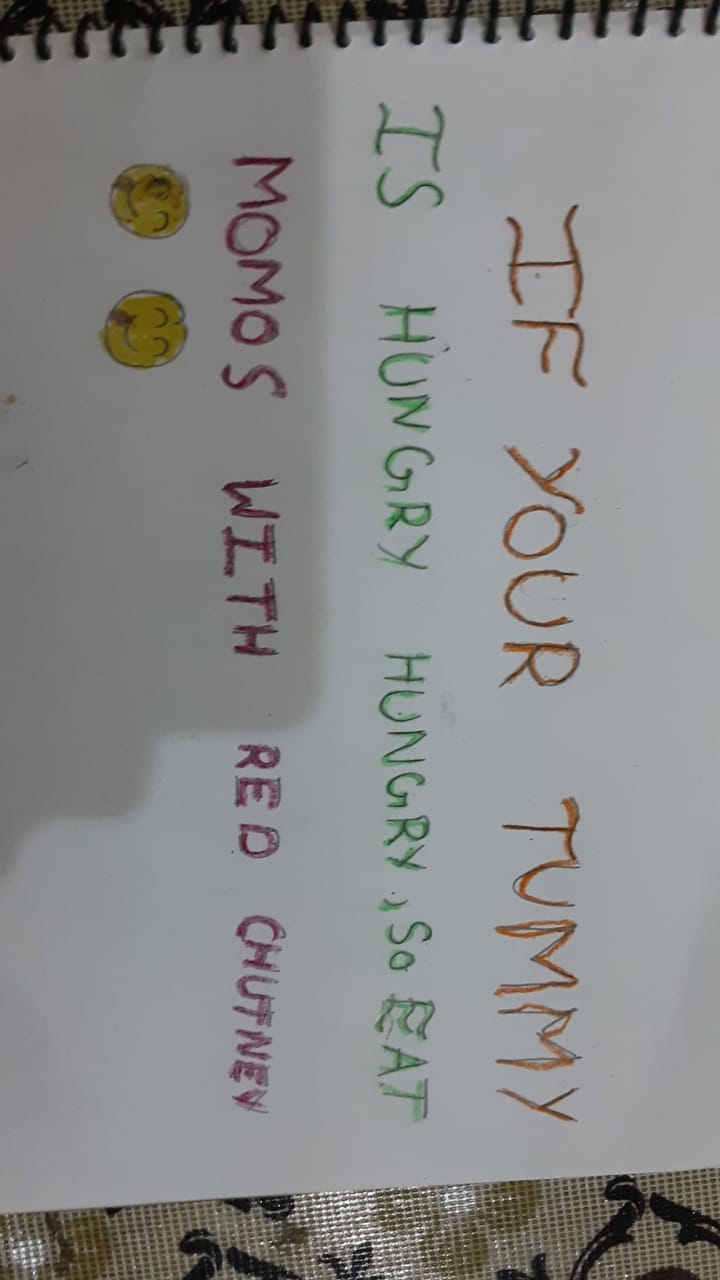 IF YOUR TUMMY
IS HUNGRY HUNGRY, SO EAT
MOMOS WITH RED CHUTNEY